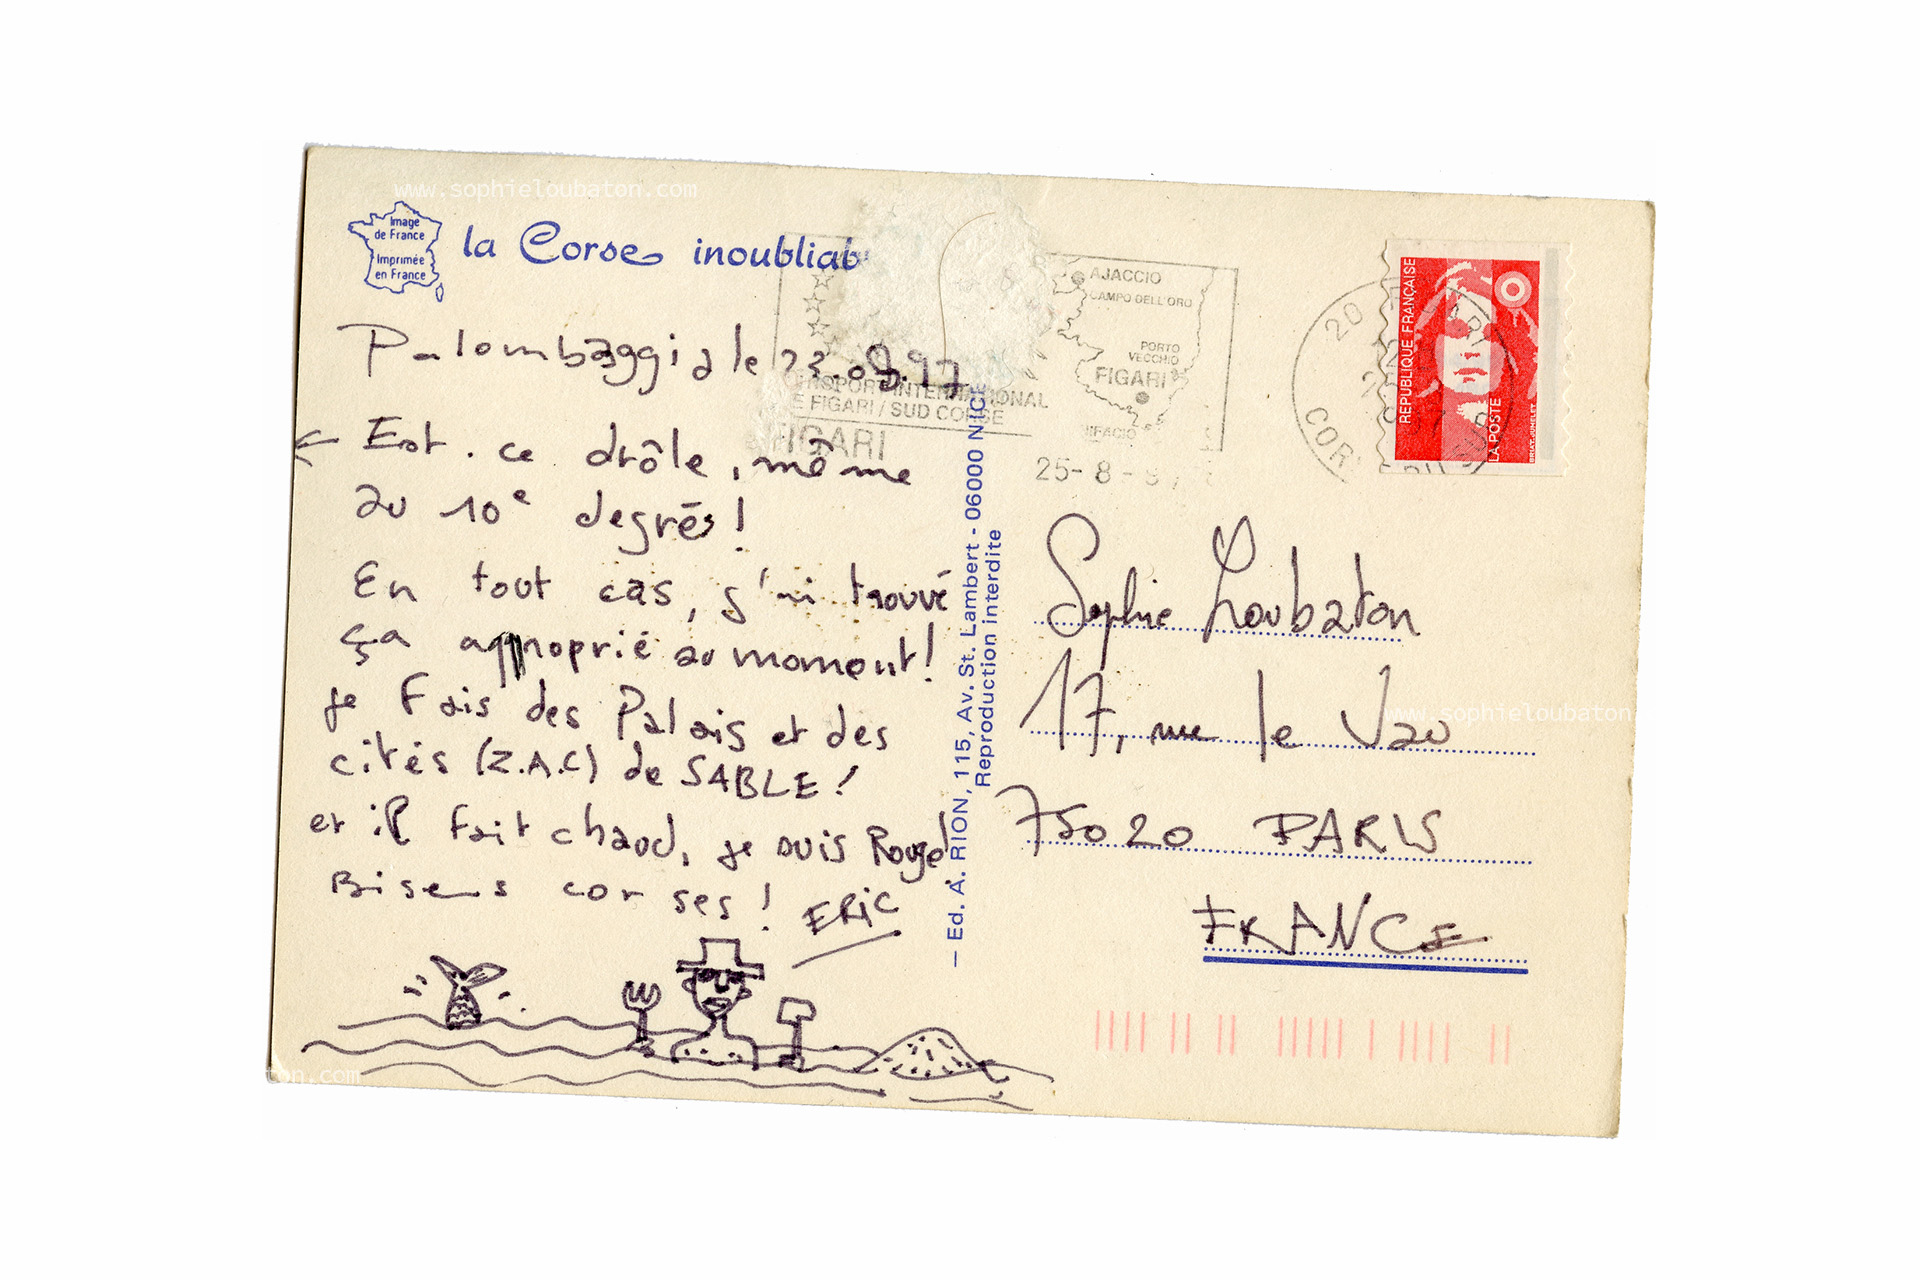 www.sophieloubaton.com
Image
de France
Imprimée
en France
la Corse inoubliab
Palombaggia le 23.08.97
← Est-ce drôle, même
au 10e degrés!
En tout cas, j'ai trouvé
ça approprié au moment!
je fais des Palais et des
cités (Z.A.C) de SABLE!
et il fait chaud, je suis Rouge!
Bisous corses!
ERIC
AJACCIO
CAMPO DELL'ORO
PORTO
VECCHIO
FIGARI
INTERNATIONAL
E FIGARI / SUD CORSE
FIGARI
IFACIO
25-8-97
— Ed. A. RION, 115, Av. St. Lambert - 06000 NICE
Reproduction interdite
20
COR
REPUBLIQUE FRANÇAISE
LA POSTE
BRIAT-JUMELET
Sophie Loubaton
17, rue le Vau
www.sophieloubaton
75020 PARIS
FRANCE
ton.com